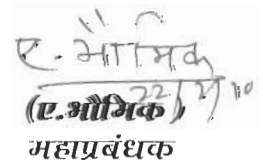 ए. भौमिक
22/4/10
(ए.भौमिक)
महाप्रबंधक